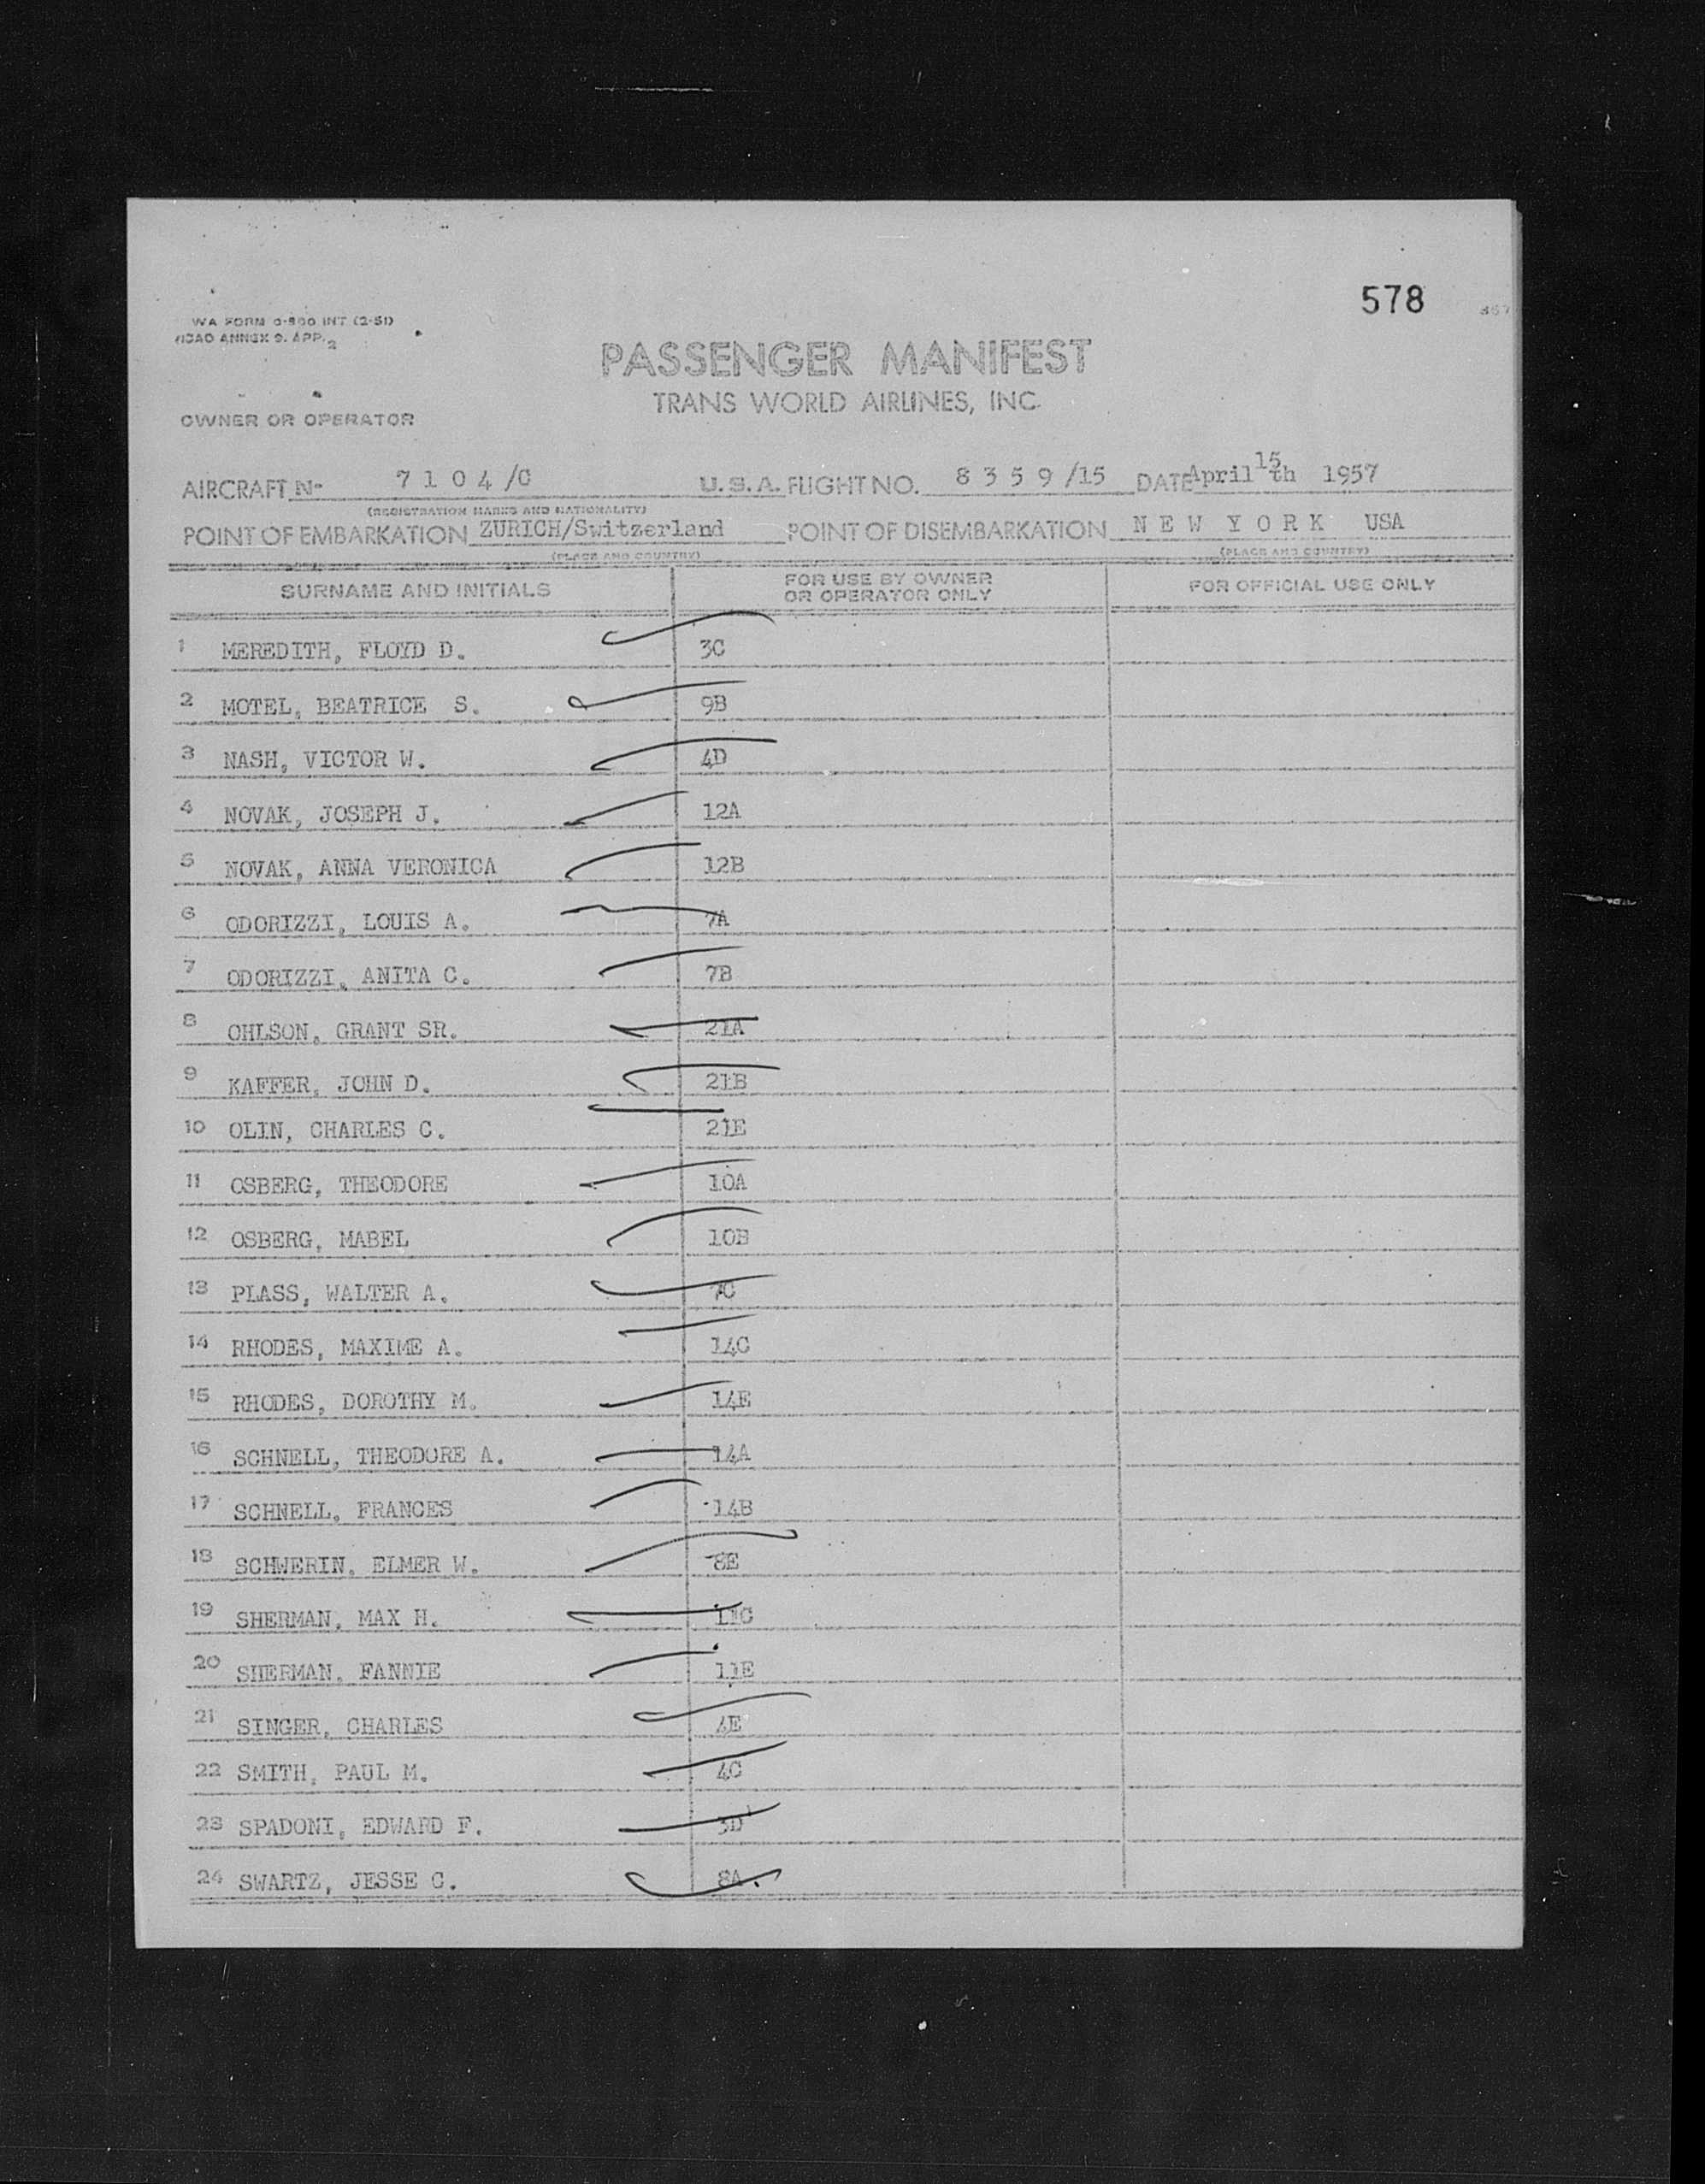 578
WA FORM 0-800 INT (2-51)
ICAO ANNEX 9. APP. 2
PASSENGER MANIFEST
TRANS WORLD AIRLINES, INC.
OWNER OR OPERATOR
AIRCRAFT No 7 1 0 4 /C U.S.A. FLIGHT NO. 8 3 5 9 /15 DATE April 15th 1957
(REGISTRATION MARKS AND NATIONALITY)
POINT OF EMBARKATION ZURICH/Switzerland POINT OF DISEMBARKATION N E W Y O R K USA
(PLACE AND COUNTRY) (PLACE AND COUNTRY)
SURNAME AND INITIALS FOR USE BY OWNER OR OPERATOR ONLY FOR OFFICIAL USE ONLY
1 MEREDITH, FLOYD D. 3C
2 MOTEL, BEATRICE S. 9B
3 NASH, VICTOR W. 4D
4 NOVAK, JOSEPH J. 12A
5 NOVAK, ANNA VERONICA 12B
6 ODORIZZI, LOUIS A. 7A
7 ODORIZZI, ANITA C. 7B
8 OHLSON, GRANT SR. 21A
9 KAFFER, JOHN D. 21B
10 OLIN, CHARLES C. 21E
11 OSBERG, THEODORE 10A
12 OSBERG, MABEL 10B
13 PLASS, WALTER A. 7C
14 RHODES, MAXIME A. 14C
15 RHODES, DOROTHY M. 14E
16 SCHNELL, THEODORE A. 14A
17 SCHNELL, FRANCES 14B
18 SCHWERIN, ELMER W. 8E
19 SHERMAN, MAX H. 11C
20 SHERMAN, FANNIE 11E
21 SINGER, CHARLES 4E
22 SMITH, PAUL M. 4C
23 SPADONI, EDWARD F. 3D
24 SWARTZ, JESSE C. 8A